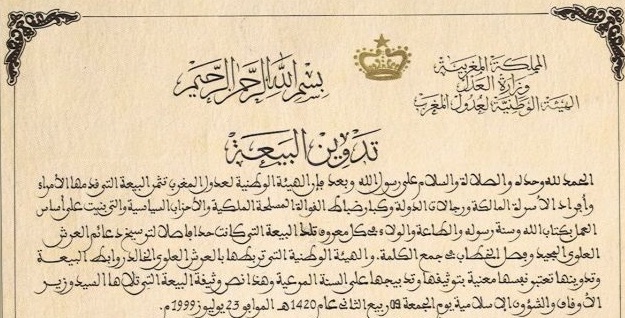 المملكة المغربية
وزارة العدل
الهيئة الوطنية لعدول المغرب
بسم الله الرحمن الرحيم
تدوين البيعة
الحمد لله وحده والصلاة والسلام على رسول الله وبعد فإن الهيئة الوطنية لعدول المغرب تثمن البيعة التي قدمها الأمراء
وأفراد الأسرة المالكة ورجالات الدولة وكبار ضباط القوات المسلحة الملكية والأحزاب السياسية والتي بنيت على أساس
العمل بكتاب الله وسنة رسوله والطاعة والولاء شكل معروه تلك البيعة التي كانت حدا فاصلا لترسيخ دعائم العرش
العلوي المجيد وفصل الخطاب في جمع الكلمة. والهيئة الوطنية التي تربطها بالعرش العلوي الخالد روابط البيعة
وتدوينها تعتبر نفسها معنية بتوثيقها وتدبيجها على السنة المرعية وهذا نص وثيقة البيعة التي تلاها السيد وزير
الأوقاف والشؤون الإسلامية يوم الجمعة 09 ربيع الثاني عام 1420هـ الموافق 23 يوليوز 1999م.